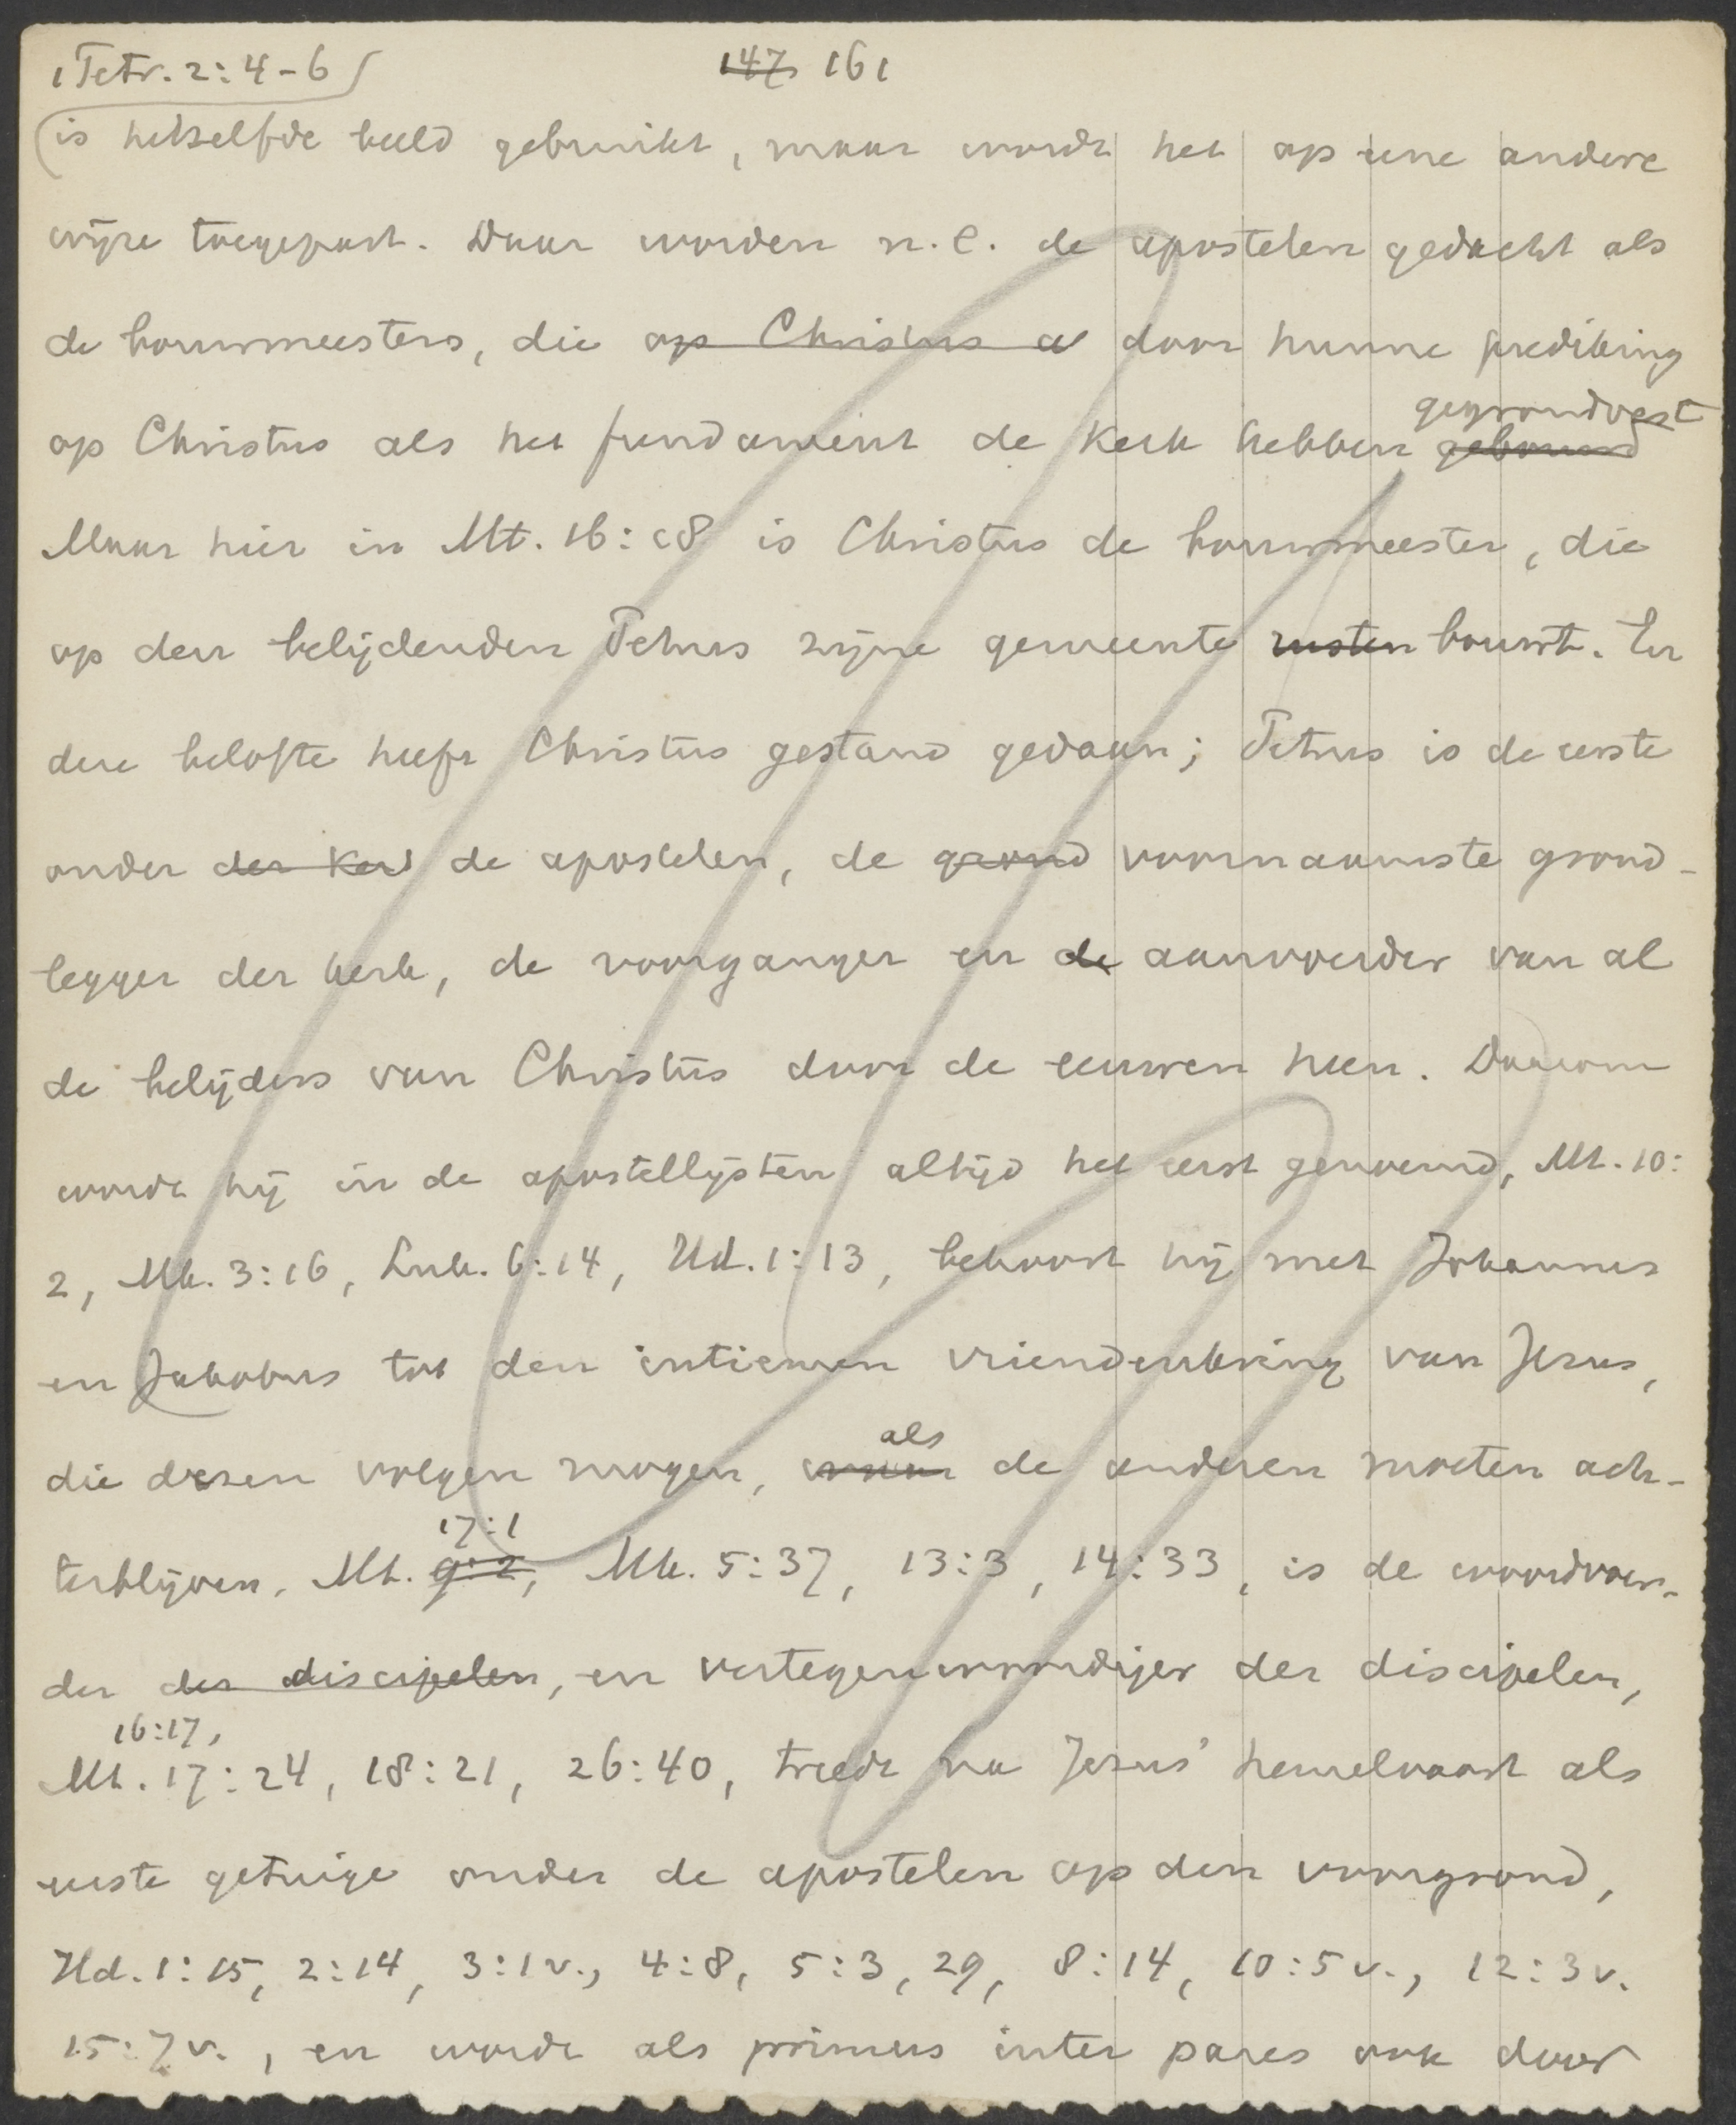 1 Petr. 2:4-6
147 161
is hetzelfde beeld gebruikt, maar wordt het op eene andere
wijze toegepast. Daar worden n.l. de apostelen gedacht als
de bouwmeesters, die op Christus a door hunne prediking
gegrondvest
op Christus als het fundament de Kerk hebben gebouwd
Maar hier in Mt. 16:18 is Christus de bouwmeester, die
op den belijdenden Petrus zijne gemeente rusten bouwt. En
deze belofte heeft Christus gestand gedaan; Petrus is de eerste
onder der Kerk de apostelen, de grond voornaamste grond-
legger der kerk, de voorganger en de aanvoerder van al
de belijders van Christus door de eeuwen heen. Daarom
wordt hij in de apostellijsten altijd het eerst genoemd, Mt. 10:
2, Mk. 3:16, Luk. 6:14, Hd. 1:13, behoort hij met Johannes
en Jakobus tot den intiemen vriendenkring van Jezus,
als
die dezen volgen mogen, waar de anderen moeten ach-
17:1
terblijven, Mt. 9:2, Mk. 5:37, 13:3, 14:33, is de woordvoer-
der der discipelen, en vertegenwoordiger der discipelen,
16:17,
Mt. 17:24, 18:21, 26:40, treedt na Jezus' hemelvaart als
eerste getuige onder de apostelen op den voorgrond,
Hd. 1:15, 2:14, 3:1 v., 4:8, 5:3, 29, 8:14, 10:5 v., 12:3 v.
15:7 v., en wordt als primus inter pares ook door